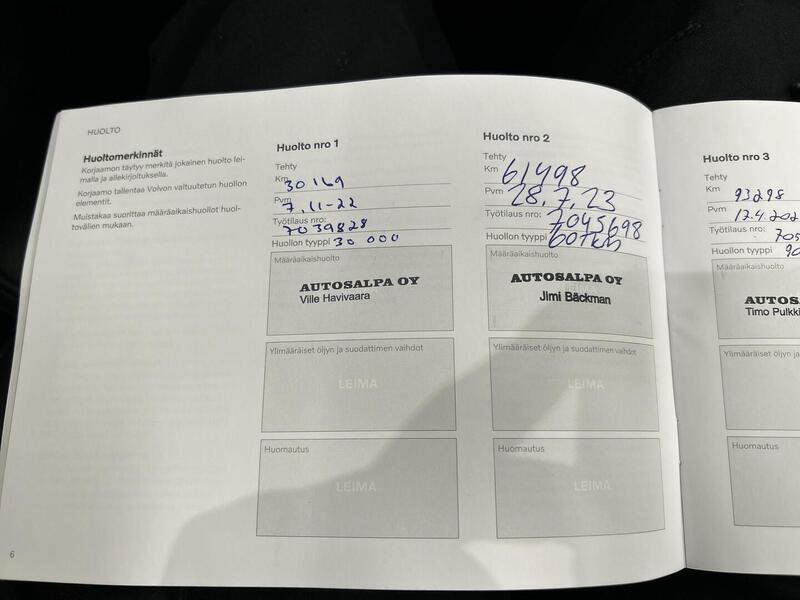 HUOLTO
Huoltomerkinnät
Korjaamon täytyy merkitä jokainen huolto lei-
malla ja allekirjoituksella.
Korjaamo tallentaa Volvon valtuutetun huollon
elementit.
Muistakaa suorittaa määräaikaishuollot huol-
tovälien mukaan.
Huolto nro 1
Tehty
Km 30169
Pvm 7.11-22
Työtilaus nro: 7039828
Huollon tyyppi 30 000
Määräaikaishuolto
AUTOSALPA OY
Ville Havivaara
Ylimääräiset öljyn ja suodattimen vaihdot
LEIMA
Huomautus
LEIMA
Huolto nro 2
Tehty
Km 61498
Pvm 28.7.23
Työtilaus nro: 7045698
Huollon tyyppi 60tkm
Määräaikaishuolto
AUTOSALPA OY
Jimi Bäckman
Ylimääräiset öljyn ja suodattimen vaihdot
LEIMA
Huomautus
LEIMA
Huolto nro 3
Tehty
Km 93298
Pvm 12.4.202
Työtilaus nro: 705
Huollon tyyppi 90
Määräaikaishuolto
AUTOS
Timo Pulkki
Ylimääräiset öljyn
Huomautus
6